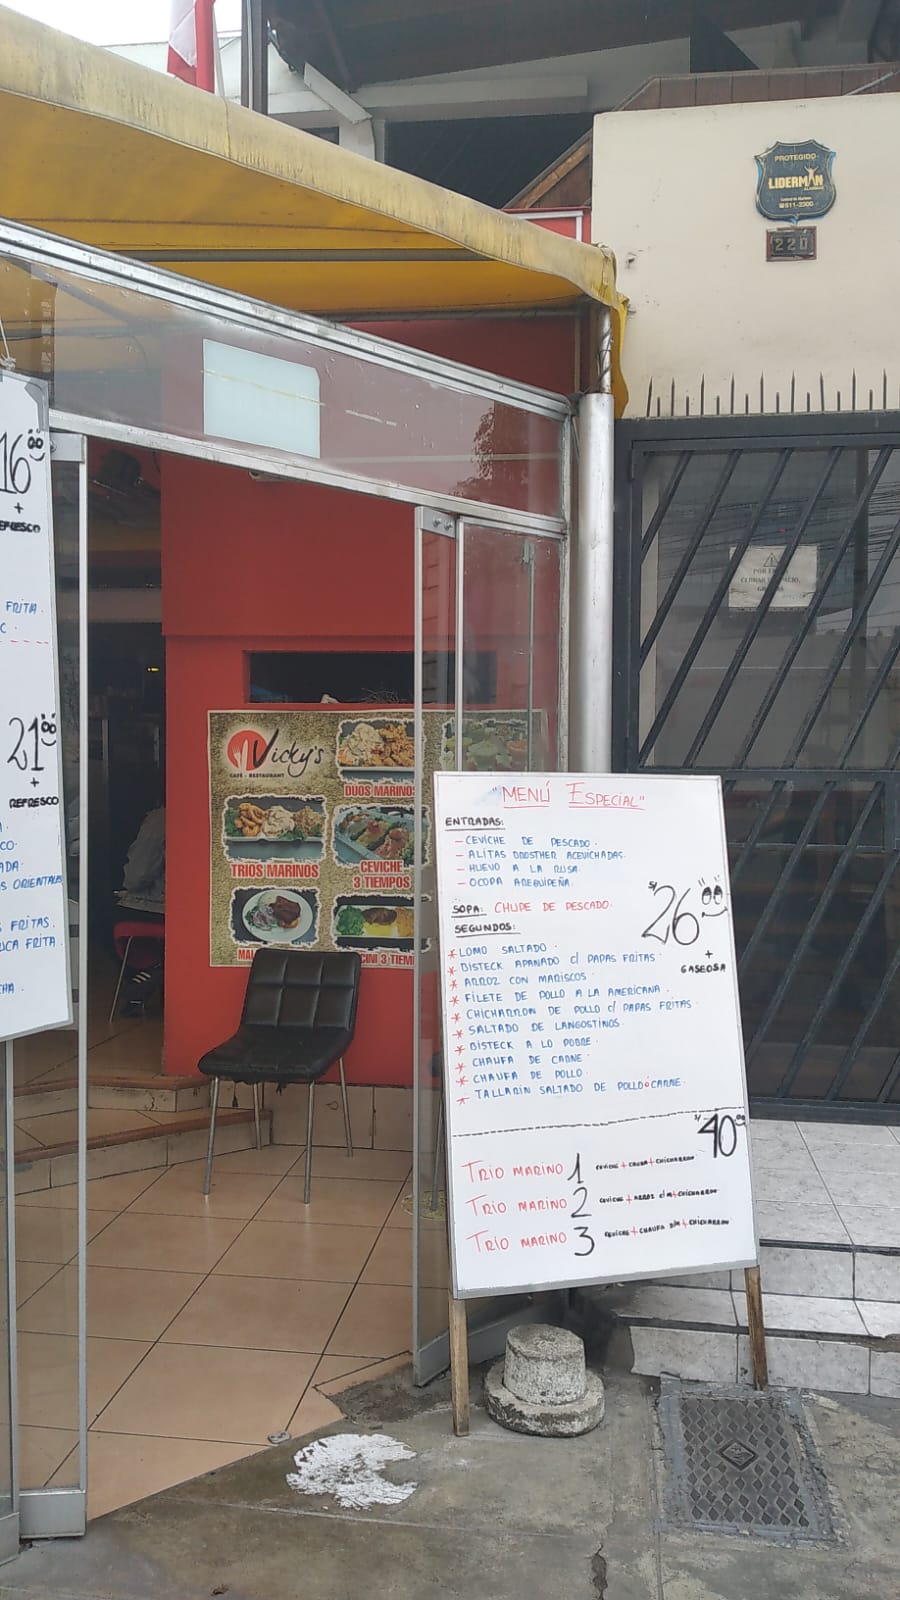 PROTEGIDO
LIDERMAN
220
16
+
REFRESCO
FRITA.
21
+
REFRESCO
FRITAS.
FRITA.
Vicky's
CAFÉ - RESTAURANT
DUOS MARINOS
TRIOS MARINOS
CEVICHE
3 TIEMPOS
"MENÚ ESPECIAL"
ENTRADAS:
- CEVICHE DE PESCADO.
- ALITAS BROSTHER ACEVICHADAS.
- HUEVO A LA RUSA.
- OCOPA AREQUIPEÑA.
SOPA: CHUPE DE PESCADO.
S/ 26.00
+
GASEOSA
SEGUNDOS:
* LOMO SALTADO.
* BISTECK APANADO c/ PAPAS FRITAS.
* ARROZ CON MARISCOS.
* FILETE DE POLLO A LA AMERICANA.
* CHICHARRON DE POLLO c/ PAPAS FRITAS.
* SALTADO DE LANGOSTINOS.
* BISTECK A LO POBRE.
* CHAUFA DE CARNE.
* CHAUFA DE POLLO.
* TALLARIN SALTADO DE POLLO ó CARNE.
S/ 40.00
TRIO MARINO 1 CEVICHE + CAUSA + CHICHARRON
TRIO MARINO 2 CEVICHE + ARROZ c/m + CHICHARRON
TRIO MARINO 3 CEVICHE + CHAUFA d/m + CHICHARRON